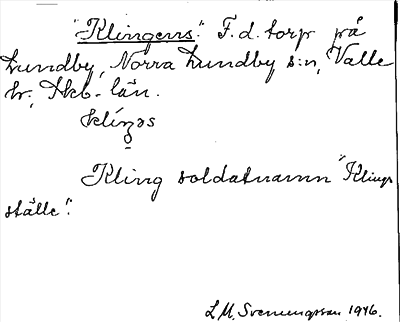 "Klingens". F.d. torp på
Lundby, Norra Lundby s:n, Valle
hr, Skb. län.
Kling soldatnamn "Klings
ställe".
L.M. Svenungsson 1946.